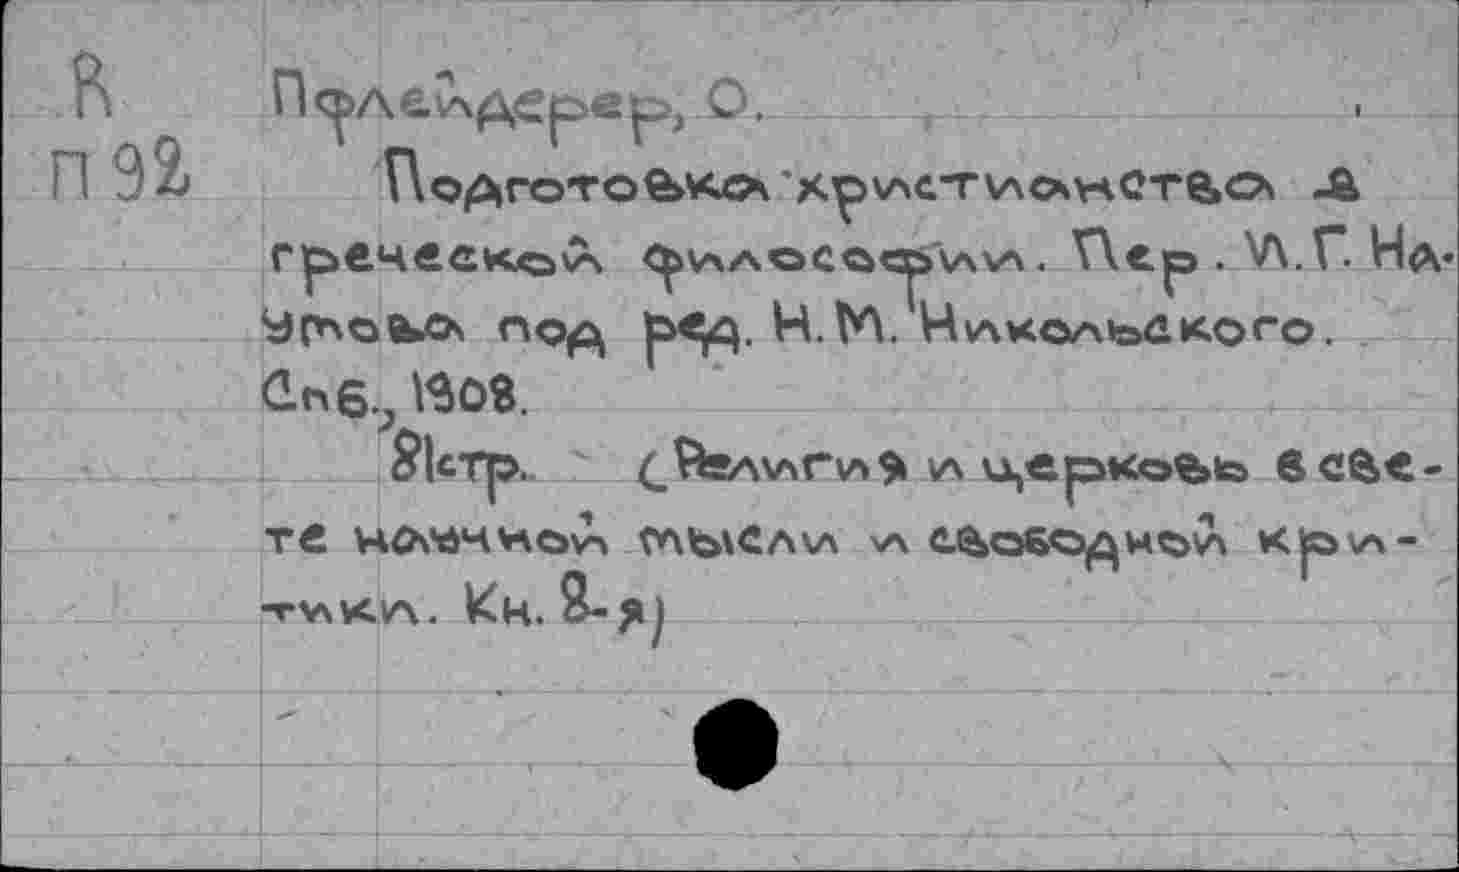 Я Пфлейдерер, О.
П 92 Подготовка христианства в
греческой философии. Пер. И.Г. На-
умова под ред. Н.М. Никольского.
Спб., 1908.
81стр. (Религия и церковь в све-
те научной мысли и свободной кри-
тики. Кн. 2-я)